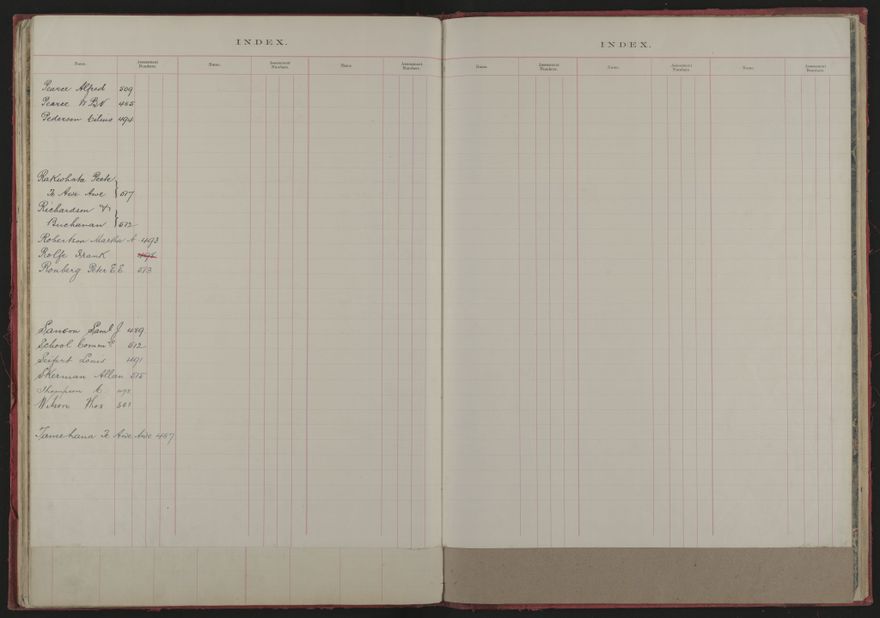 INDEX.
Name. Assessment Numbers. Name. Assessment Numbers. Name. Assessment Numbers.
Pearce Alfred 509
Pearce W 465
Pedersen 494
Rakiwhata Peete
Te Awe Awe 517
Richardson &
Buchanan 512
Robertson Martha A 493
Rolfe Frank 495
Ronberg Peter E E 513
Sanson Saml J 489
School Committe 512
Seifert Louis 491
Skerman Allan 515
Thompson C
Wilson Thos 501
Tamehana Te Awe Awe 487
INDEX.
Name. Assessment Numbers. Name. Assessment Numbers. Name. Assessment Numbers.